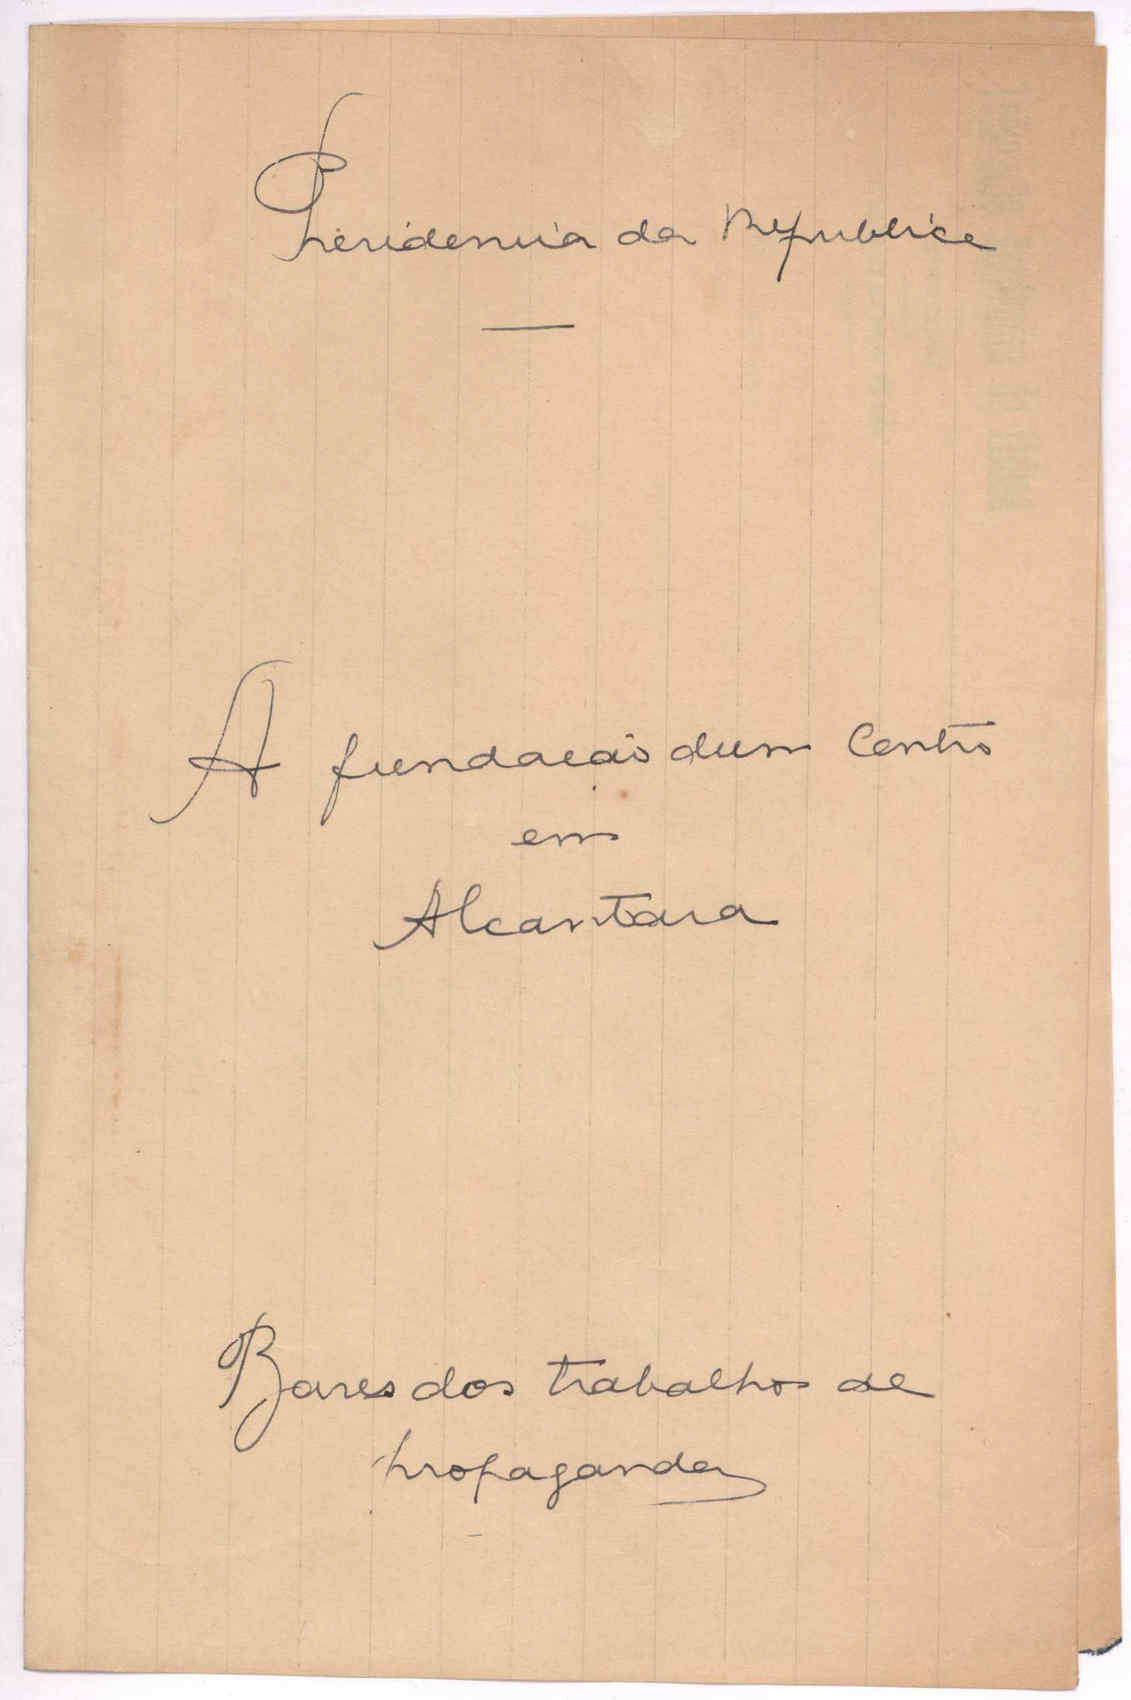 Presidencia da Republica
A fundação dum Centro
em
Alcantara
Bases dos trabalhos de
propaganda